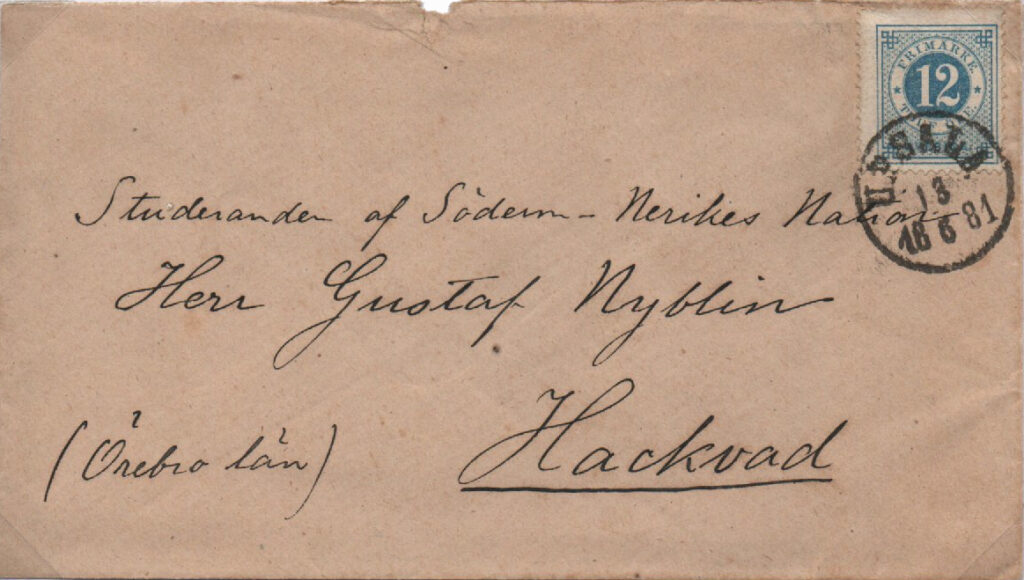 FRIMÄRKE
12
TOLF ÖRE.
UPSALA
13
18 6 81
Studeranden af Söderm-Nerikes Nation
Herr Gustaf Nyblin
Hackvad
(Örebro län)